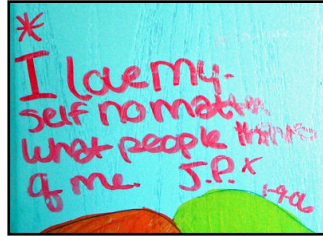 *
I love my-
self no matter
what people thinks
of me. J.P. x
1-9-06